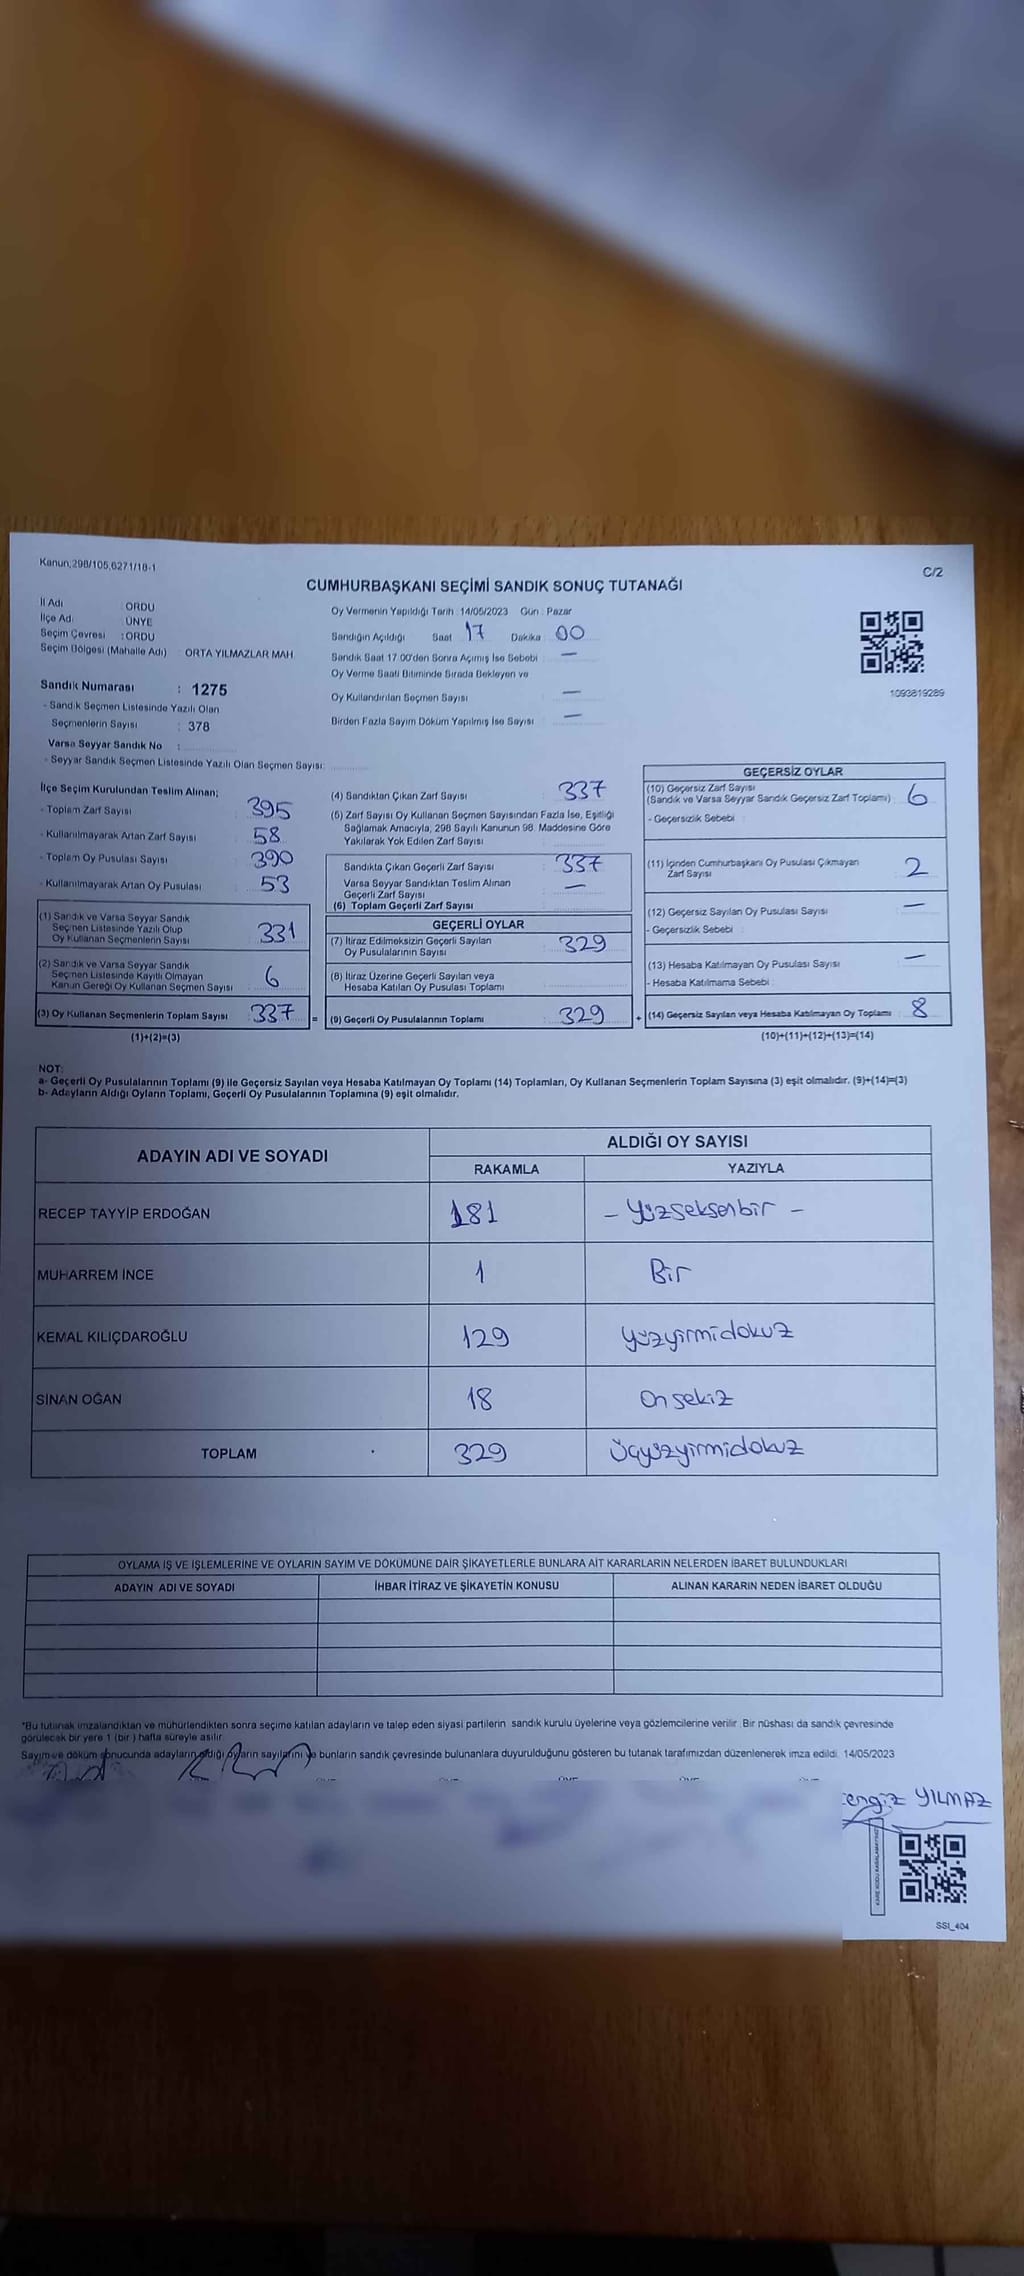 Kanun,298/105,6271/18-1
C/2
CUMHURBAŞKANI SEÇİMİ SANDIK SONUÇ TUTANAĞI
İl Adı : ORDU
İlçe Adı : ÜNYE
Seçim Çevresi : ORDU
Seçim Bölgesi (Mahalle Adı) : ORTA YILMAZLAR MAH.
Sandık Numarası : 1275
- Sandık Seçmen Listesinde Yazılı Olan
Seçmenlerin Sayısı : 378
Varsa Seyyar Sandık No :
- Seyyar Sandık Seçmen Listesinde Yazılı Olan Seçmen Sayısı:
Oy Vermenin Yapıldığı Tarih : 14/05/2023 Gün : Pazar
Sandığın Açıldığı Saat 17 Dakika : 00
Sandık Saat 17.00'den Sonra Açılmış İse Sebebi : —
Oy Verme Saati Bitiminde Sırada Bekleyen ve
Oy Kullandırılan Seçmen Sayısı —
Birden Fazla Sayım Döküm Yapılmış İse Sayısı —
1093819289
İlçe Seçim Kurulundan Teslim Alınan;
- Toplam Zarf Sayısı : 395
- Kullanılmayarak Artan Zarf Sayısı : 58
- Toplam Oy Pusulası Sayısı : 390
- Kullanılmayarak Artan Oy Pusulası : 53
(1) Sandık ve Varsa Seyyar Sandık
Seçmen Listesinde Yazılı Olup
Oy Kullanan Seçmenlerin Sayısı 331
(2) Sandık ve Varsa Seyyar Sandık
Seçmen Listesinde Kayıtlı Olmayan
Kanun Gereği Oy Kullanan Seçmen Sayısı 6
(3) Oy Kullanan Seçmenlerin Toplam Sayısı : 337
(1)+(2)=(3)
(4) Sandıktan Çıkan Zarf Sayısı : 337
(5) Zarf Sayısı Oy Kullanan Seçmen Sayısından Fazla İse, Eşitliği
Sağlamak Amacıyla, 298 Sayılı Kanunun 98. Maddesine Göre
Yakılarak Yok Edilen Zarf Sayısı
Sandıkta Çıkan Geçerli Zarf Sayısı : 337
Varsa Seyyar Sandıktan Teslim Alınan
Geçerli Zarf Sayısı —
(6) Toplam Geçerli Zarf Sayısı
GEÇERLİ OYLAR
(7) İtiraz Edilmeksizin Geçerli Sayılan
Oy Pusulalarının Sayısı : 329
(8) İtiraz Üzerine Geçerli Sayılan veya
Hesaba Katılan Oy Pusulası Toplamı
= (9) Geçerli Oy Pusulalarının Toplamı : 329
GEÇERSİZ OYLAR
(10) Geçersiz Zarf Sayısı
(Sandık ve Varsa Seyyar Sandık Geçersiz Zarf Toplamı) 6
- Geçersizlik Sebebi :
(11) İçinden Cumhurbaşkanı Oy Pusulası Çıkmayan
Zarf Sayısı 2
(12) Geçersiz Sayılan Oy Pusulası Sayısı —
- Geçersizlik Sebebi :
(13) Hesaba Katılmayan Oy Pusulası Sayısı —
- Hesaba Katılmama Sebebi :
+ (14) Geçersiz Sayılan veya Hesaba Katılmayan Oy Toplamı 8
(10)+(11)+(12)+(13)=(14)
NOT:
a- Geçerli Oy Pusulalarının Toplamı (9) ile Geçersiz Sayılan veya Hesaba Katılmayan Oy Toplamı (14) Toplamları, Oy Kullanan Seçmenlerin Toplam Sayısına (3) eşit olmalıdır. (9)+(14)=(3)
b- Adayların Aldığı Oyların Toplamı, Geçerli Oy Pusulalarının Toplamına (9) eşit olmalıdır.
ADAYIN ADI VE SOYADI
ALDIĞI OY SAYISI
RAKAMLA YAZIYLA
RECEP TAYYİP ERDOĞAN 181 – Yüzseksenbir –
MUHARREM İNCE 1 Bir
KEMAL KILIÇDAROĞLU 129 yüzyirmidokuz
SİNAN OĞAN 18 Onsekiz
TOPLAM 329 Üçyüzyirmidokuz
OYLAMA İŞ VE İŞLEMLERİNE VE OYLARIN SAYIM VE DÖKÜMÜNE DAİR ŞİKAYETLERLE BUNLARA AİT KARARLARIN NELERDEN İBARET BULUNDUKLARI
ADAYIN ADI VE SOYADI İHBAR İTİRAZ VE ŞİKAYETİN KONUSU ALINAN KARARIN NEDEN İBARET OLDUĞU
*Bu tutanak imzalandıktan ve mühürlendikten sonra seçime katılan adayların ve talep eden siyasi partilerin sandık kurulu üyelerine veya gözlemcilerine verilir. Bir nüshası da sandık çevresinde
görülecek bir yere 1 (bir ) hafta süreyle asılır.
Sayım ve döküm sonucunda adayların aldığı oyların sayılarını ve bunların sandık çevresinde bulunanlara duyurulduğunu gösteren bu tutanak tarafımızdan düzenlenerek imza edildi. 14/05/2023
YILMAZ
SSI_404